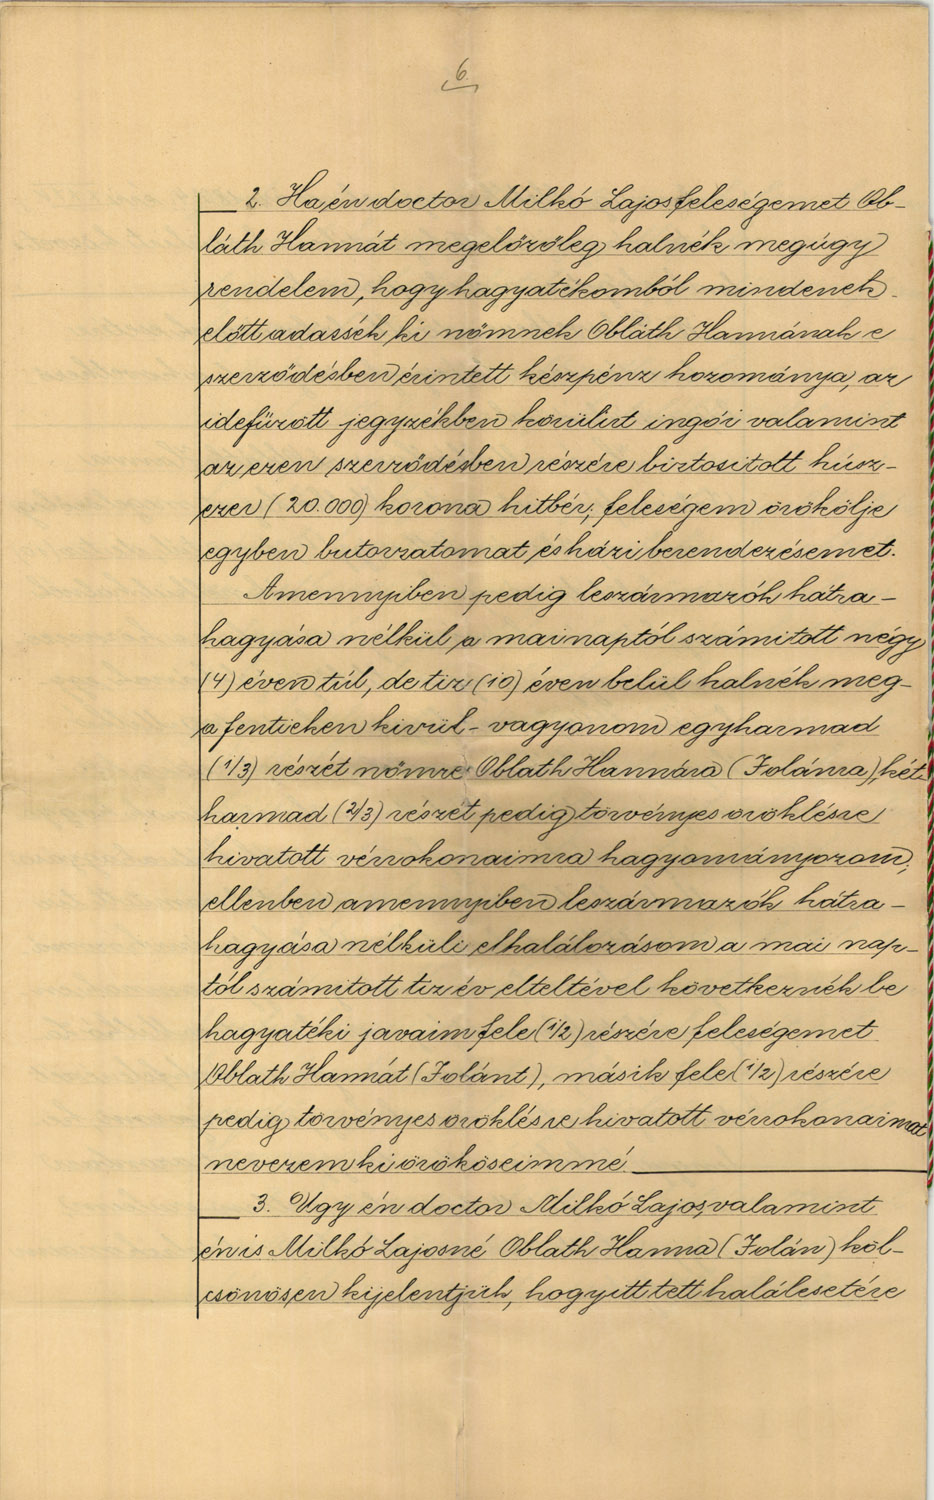 6.
2. Ha én doctor Milkó Lajos feleségemet Ob-
láth Hannát megelőzőleg halnék meg úgy
rendelem, hogy hagyatékomból mindenek
előtt adassék ki nőmnek Obláth Hannának e
szerződésben érintett készpénz hozománya, az
idefűzött jegyzékben körülirt ingói valamint
az ezen szerződésben részére biztositott húsz-
ezer (20.000) korona hitbér; feleségem örökölje
egyben butorzatomat és házi berendezésemet.
Amennyiben pedig leszármazók hátra-
hagyása nélkül a mai naptól számitott négy
(4) éven túl, de tiz (10) éven belül halnék meg-
a fentieken kivül - vagyonom egyharmad
(1/3) részét nőmre Oblath Hannára (Jolánra), két
harmad (2/3) részét pedig törvényes öröklésre
hivatott vérrokonaimra hagyományozom;
ellenben amennyiben leszármazók hátra-
hagyása nélküli elhalálozásom a mai nap-
tól számitott tiz év elteltével következnék be
hagyatéki javaim fele (1/2) részére feleségemet
Oblath Hannát (Jolánt), másik fele (1/2) részére
pedig törvényes öröklésre hivatott vérrokonaimat
nevezem ki örököseimmé.
3. Ugy én doctor Milkó Lajos, valamint
én is Milkó Lajosné Oblath Hanna (Jolán) köl-
csönösen kijelentjük, hogy itt tett halálesetére